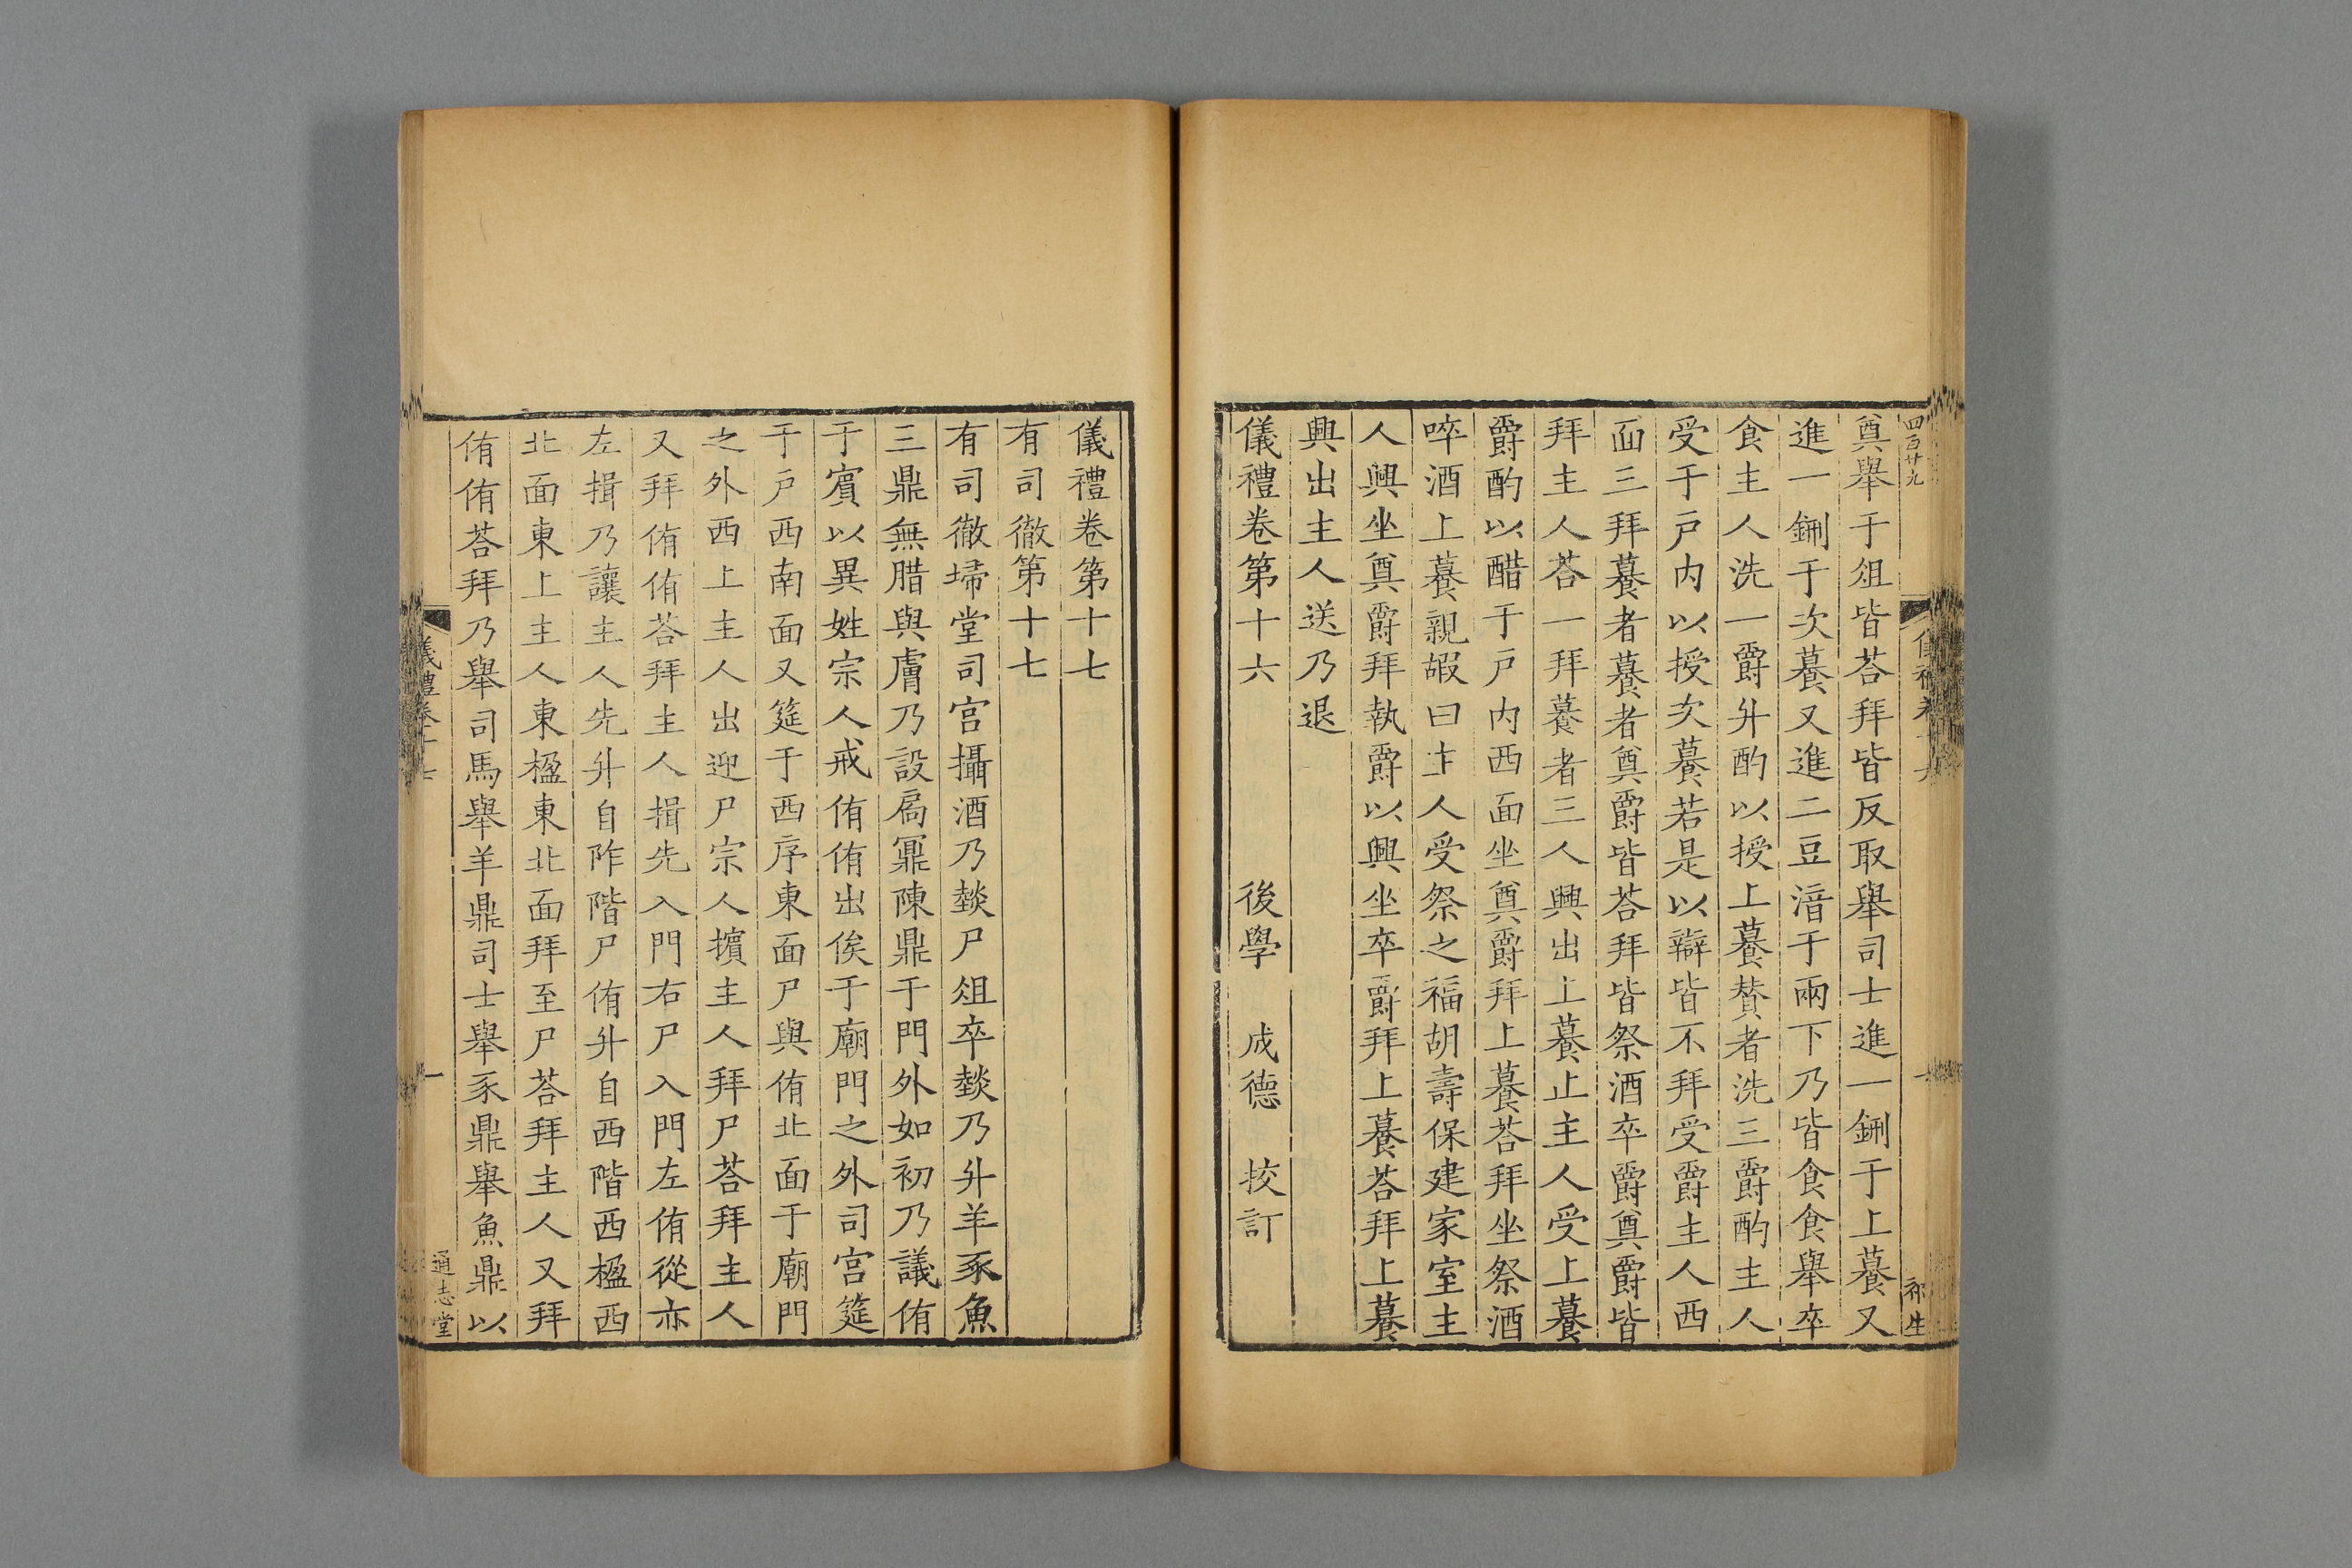 四百廿九
奠舉于俎皆荅拜皆反取舉司士進一鉶于上䭇又
進一鉶于次䭇又進二豆湇于兩下乃皆食食舉卒
食主人洗一爵升酌以授上䭇贊者洗三爵酌主人
受于戶内以授次䭇若是以辯皆不拜受爵主人西
面三拜䭇者䭇者奠爵皆荅拜皆祭酒卒爵奠爵皆
拜主人荅一拜䭇者三人興出上䭇止主人受上䭇
爵酌以醋于戶内西面坐奠爵拜上䭇荅拜坐祭酒
啐酒上䭇親嘏曰主人受祭之福胡壽保建家室主
人興坐奠爵拜執爵以興坐卒爵拜上䭇荅拜上䭇
興出主人送乃退
儀禮卷第十六 後學 成德 挍訂
儀禮卷第十七
有司徹第十七
有司徹埽堂司宫攝酒乃燅尸俎卒燅乃升羊豕魚
三鼎無腊與膚乃設扃鼏陳鼎于門外如初乃議侑
于賓以異姓宗人戒侑侑出俟于廟門之外司宫筵
于戶西南面又筵于西序東面尸與侑北面于廟門
之外西上主人出迎尸宗人擯主人拜尸荅拜主人
又拜侑侑荅拜主人揖先入門右尸入門左侑從亦
左揖乃讓主人先升自阼階尸侑升自西階西楹西
北面東上主人東楹東北面拜至尸荅拜主人又拜
侑侑荅拜乃舉司馬舉羊鼎司士舉豕鼎舉魚鼎以
儀禮卷十七
一
通志堂